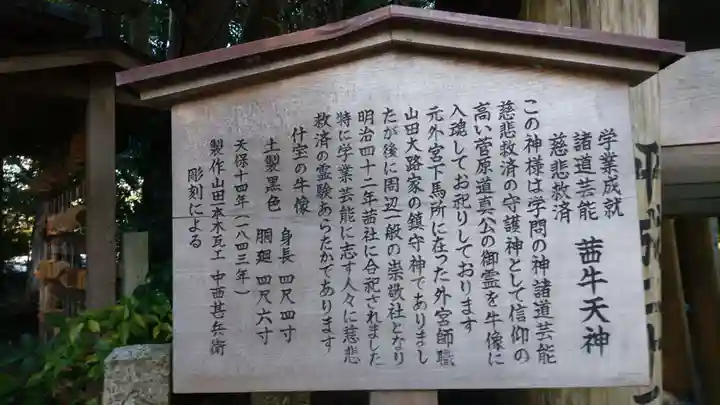 学業成就
諸道芸能
慈悲救済
茜牛天神
この神様は学問の神諸道芸能
慈悲救済の守護神として信仰の
高い菅原道真公の御霊を牛像に
入魂してお祀りしております
元外宮下馬所に在った外宮師職
山田大路家の鎮守神でありまし
たが後に周辺一般の崇敬社となり
明治四十二年茜社に合祀されました
特に学業芸能に志す人々に慈悲
救済の霊験あらたかであります
什宝の牛像
土製黒色
身長 四尺四寸
胴廻 四尺六寸
天保十四年(一八四三年)
製作山田本木瓦工 中西甚兵衛
彫刻による
平成二十